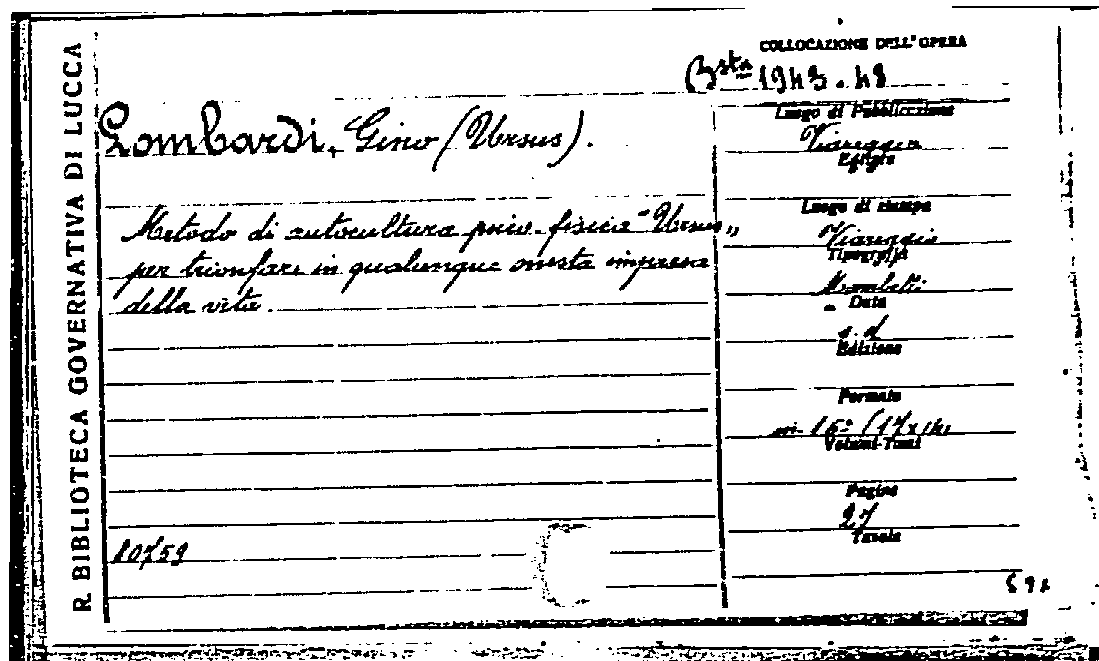 R. BIBLIOTECA GOVERNATIVA DI LUCCA
COLLOCAZIONE DELL'OPERA
Bsta 1943.48
Lombardi, Gino (Ursus).
Metodo di autocultura psico-fisica "Ursus"
per trionfare in qualunque onesta impresa
della vita.
Luogo di Pubblicazione
Viareggio
Editore
Luogo di stampa
Viareggio
Tipografia
Data
s. d.
Edizione
Formato
in 16°
Volumi-Tomi
Pagine
27
Tavole
10759